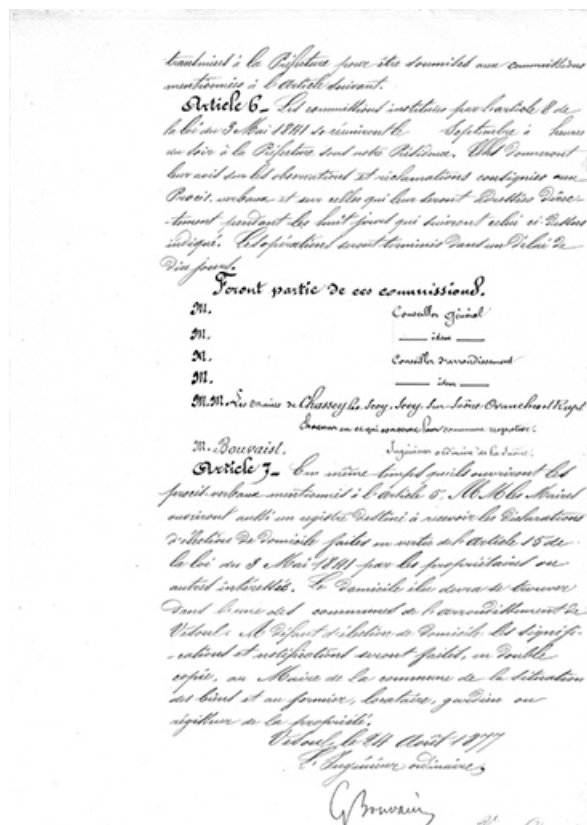 transmises à la Préfecture pour être soumises aux commissions
mentionnées à l'Article suivant.
Article 6_ Les commissions instituées par l'article 8 de
la loi du 3 Mai 1841 se réuniront le Septembre à heures
du soir à la Préfecture sous notre Présidence. Elles donneront
leur avis sur les observations et réclamations consignées aux
Procès-verbaux et sur celles qui leur seront adressées direc-
-tement pendant les huit jours qui suivront celui ci-dessus
indiqué. Les opérations seront terminées dans un délai de
dix jours.
Feront partie de ces commissions.
M. Conseiller général
M. __ idem __
M. Conseiller d'arrondissement
M. __ idem __
M.M. Les Maires de Chassey les Scey, Scey-sur-Saône, Ovanches et Rupt
chacun en ce qui concerne leur commune respective.
M. Bouvaist. Ingénieur ordinaire de la Saône.
Article 7_ En même temps qu'ils ouvriront les
procès-verbaux mentionnés à l'Article 5, M.M. les Maires
ouvriront aussi un registre destiné à recevoir les déclarations
d'élections de domicile faites en vertu de l'Article 15 de
la loi du 3 Mai 1841 par les propriétaires ou
autres intéressés. Le domicile élu devra se trouver
dans l'une des communes de l'arrondissement de
Vesoul. A défaut d'élection de domicile les signifi-
-cations et notifications seront faites, en double
copie, au Maire de la commune de la situation
des biens et au fermier, locataire, gardien ou
régisseur de la propriété.
Vesoul, le 24 Août 1877
L'Ingénieur ordinaire,
G Bouvaist